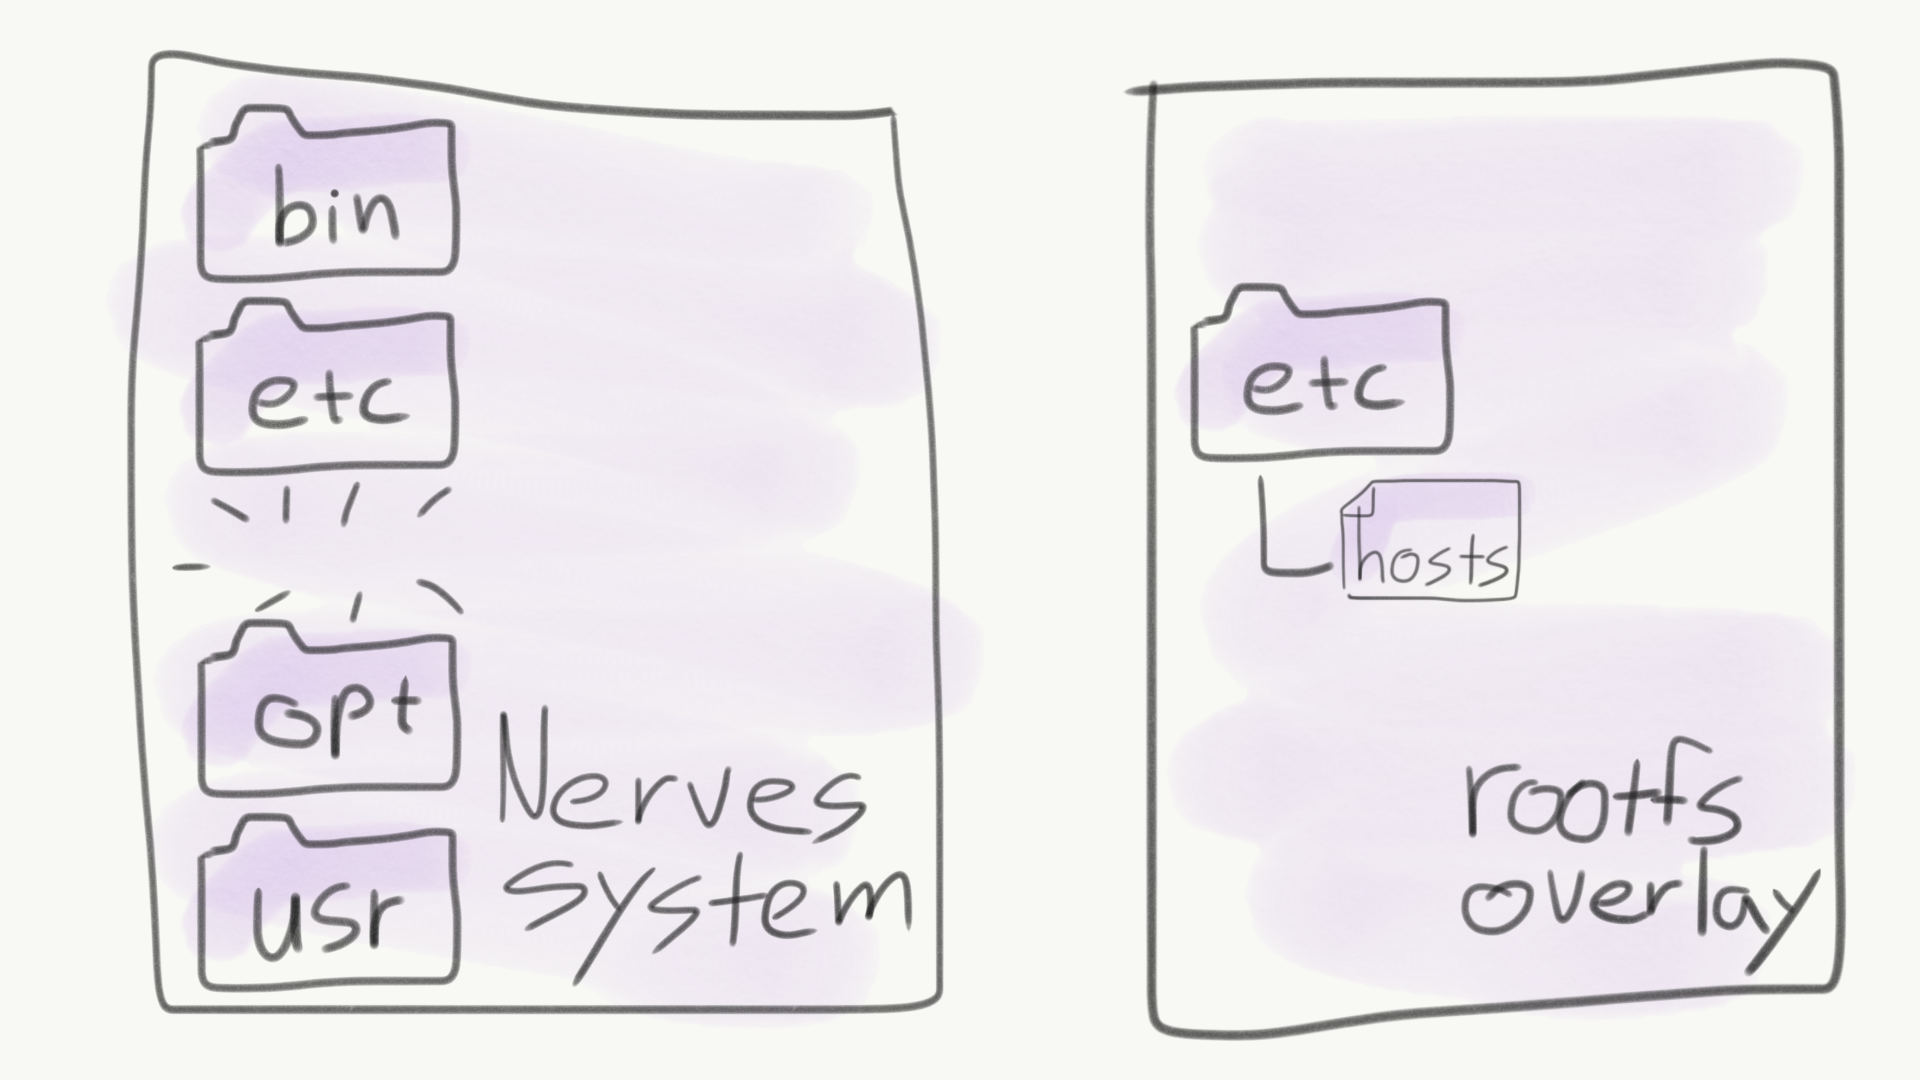 bin
etc
opt
usr
Nerves
System
etc
hosts
rootfs
overlay